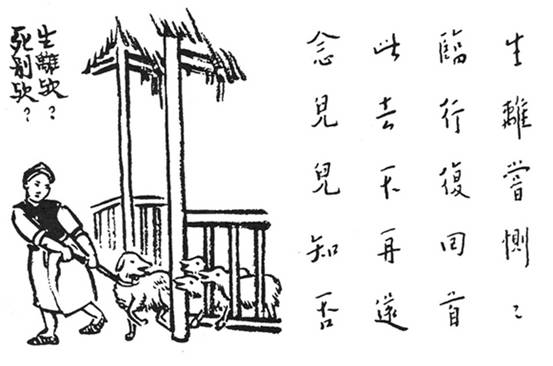 生離嘗惻〻
臨行復回首
此去不再還
念兒兒知否
生離欤？
死別欤？